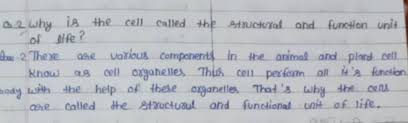 Q.2 Why is the cell called the structural and function unit
of life?
Ans-2 There are various components in the animal and plant cell
know as cell organelles. This cell perform all it's function
body with the help of these organelles That's why the cells
are called the structural and functional unit of life.